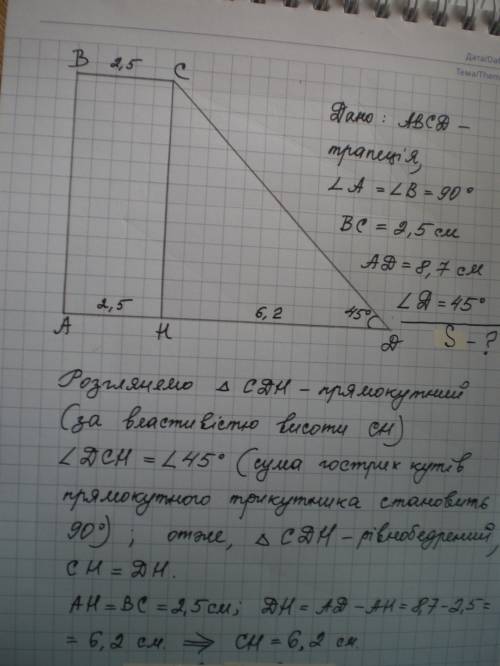 Дата/Da
Тема/The
B 2,5 C
Дано: ABCD –
трапеція,
∠A = ∠B = 90°
BC = 2,5 см
AD = 8,7 см
∠D = 45°
S – ?
2,5 6,2 45°
A H D
Розглянемо △ CDH – прямокутний
(за властивістю висоти CH)
∠DCH = ∠45° (сума гострих кутів
прямокутного трикутника становить
90°) ; отже, △ CDH – рівнобедрений,
CH = DH.
AH = BC = 2,5 см; DH = AD – AH = 8,7 – 2,5 =
= 6,2 см ⇒ CH = 6,2 см